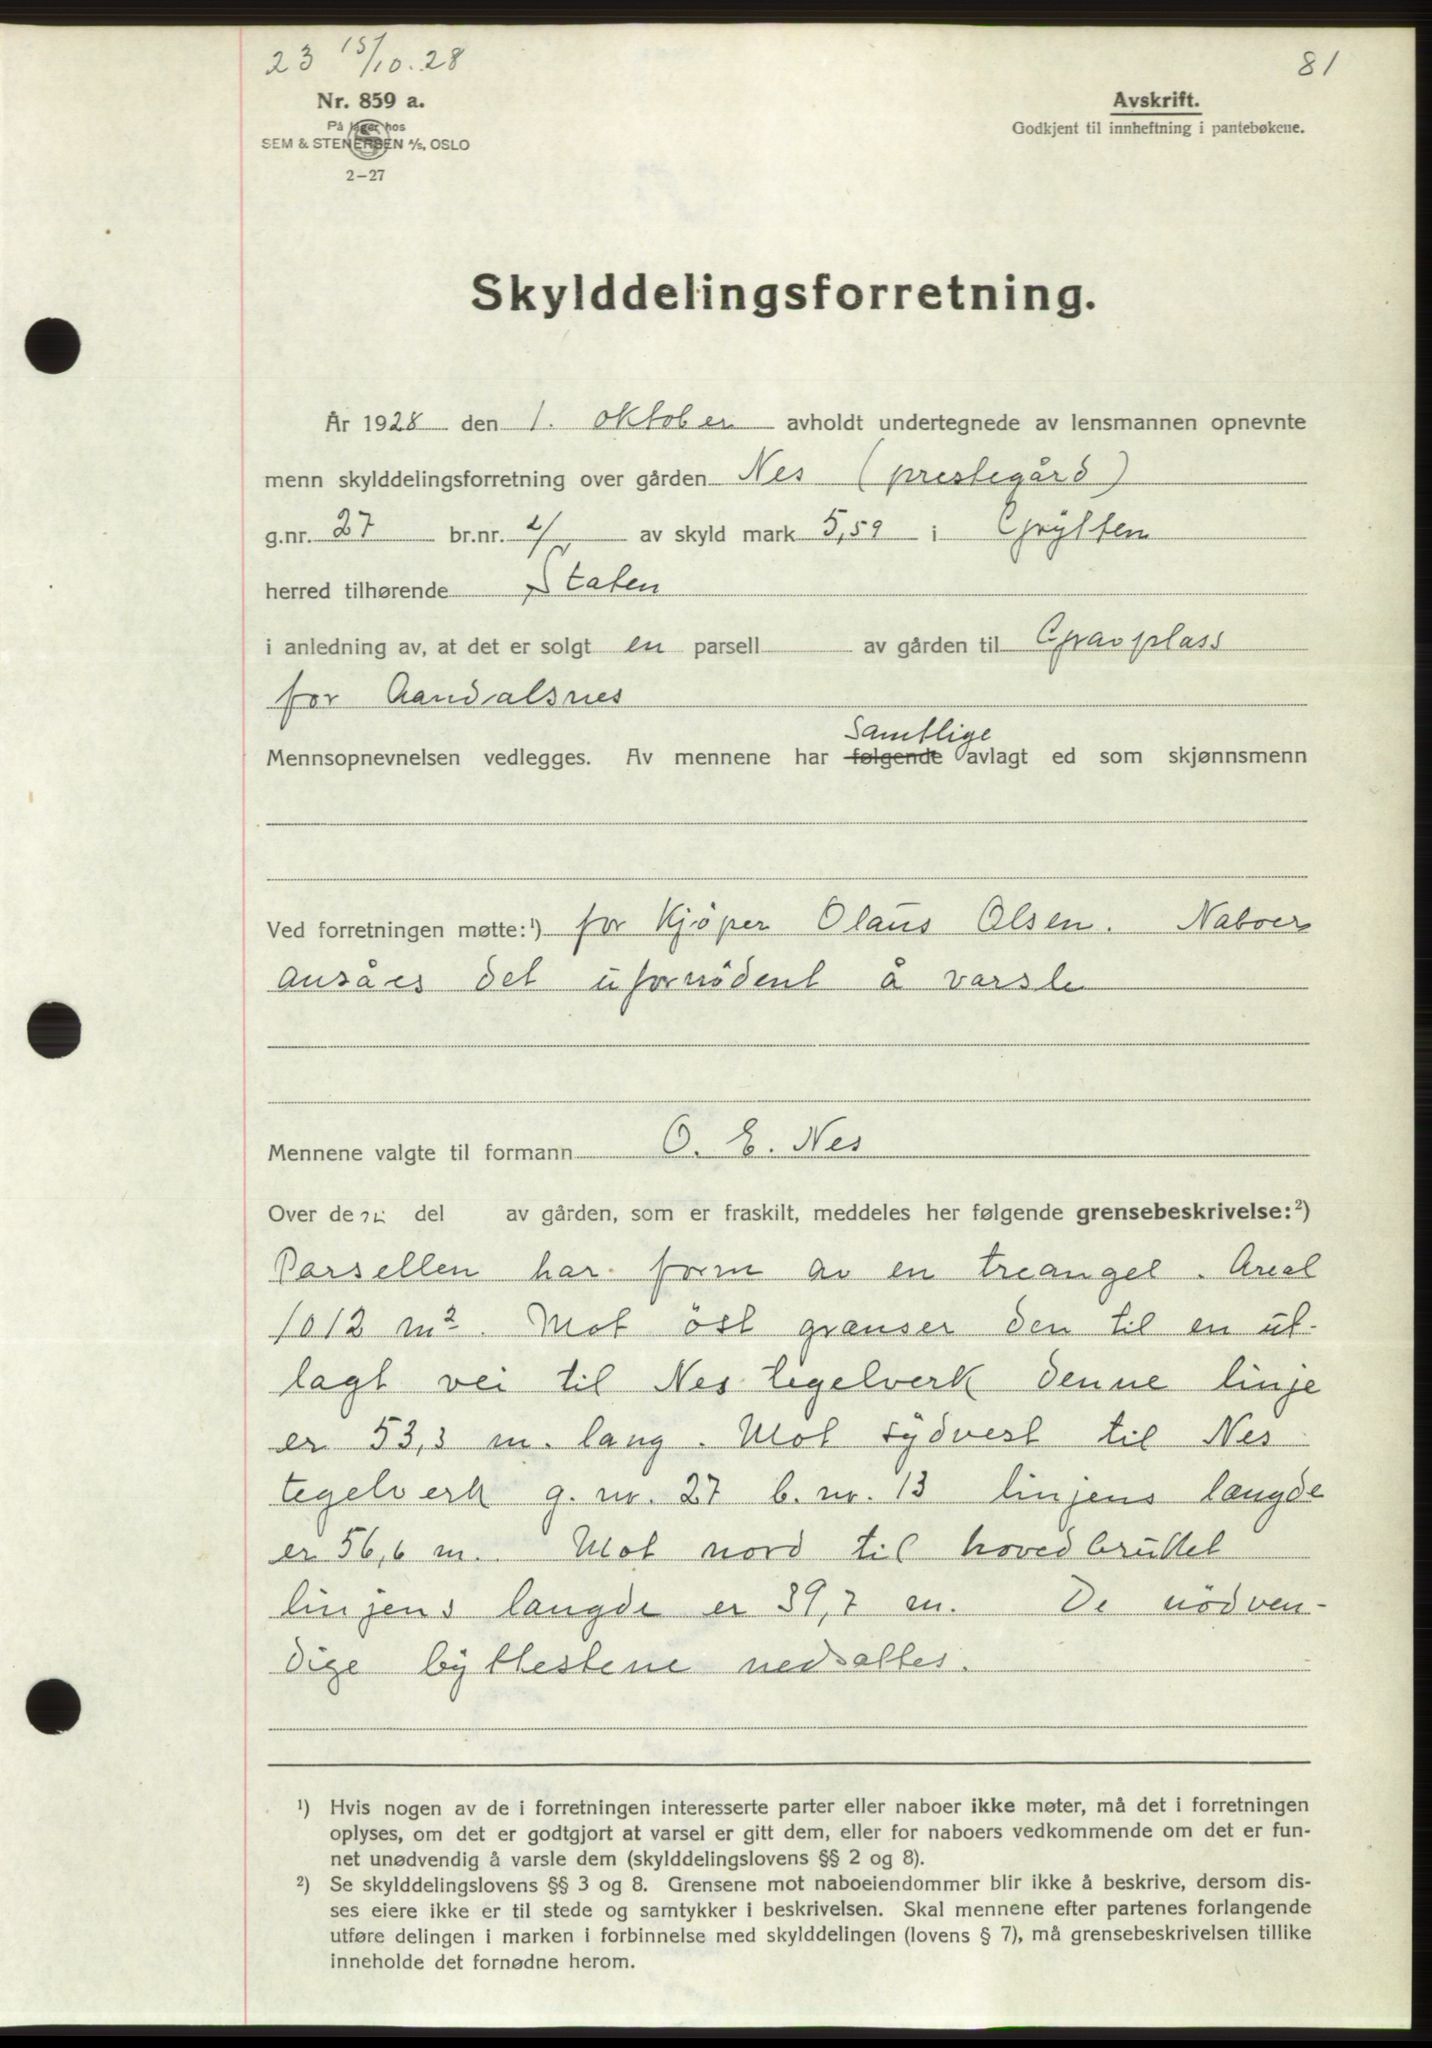 23 15/10.28
81
Nr. 859 a.
På lager hos
SEM & STENERSEN A/S, OSLO
2–27
Avskrift.
Godkjent til innheftning i pantebøkene.
Skylddelingsforretning.
År 1928 den 1. oktober avholdt undertegnede av lensmannen opnevnte
menn skylddelingsforretning over gården Nes (prestegård)
g.nr. 27 br.nr. av skyld mark 5,59 i Grytten
herred tilhørende Staten
i anledning av, at det er solgt en parsell av gården til Gravplass
for Aandalsnes
Samtlige
Mennsopnevnelsen vedlegges. Av mennene har følgende avlagt ed som skjønnsmenn
Ved forretningen møtte:¹) for Kjöper Olaus Olsen. Naboer
ansåes det ufornödent å varsle
Mennene valgte til formann O. E. Nes
Over den del av gården, som er fraskilt, meddeles her følgende grensebeskrivelse:²)
Parsellen har form av en treangel. Areal
1012 m². Mot öst grænser den til en ut-
lagt vei til Nes tegelverk denne linje
er 53,3 m. lang. Mot sydvest til Nes
tegelverk g. nr. 27 b. nr. 13 linjens længde
er 56,6 m. Mot nord til hovedbruket
linjens længde er 39,7 m. De nödven-
dige byttestene nedsattes.
¹) Hvis nogen av de i forretningen interesserte parter eller naboer ikke møter, må det i forretningen
oplyses, om det er godtgjort at varsel er gitt dem, eller for naboers vedkommende om det er fun-
net unødvendig å varsle dem (skylddelingslovens §§ 2 og 8).
²) Se skylddelingslovens §§ 3 og 8. Grensene mot naboeiendommer blir ikke å beskrive, dersom dis-
ses eiere ikke er til stede og samtykker i beskrivelsen. Skal mennene efter partenes forlangende
utføre delingen i marken i forbinnelse med skylddelingen (lovens § 7), må grensebeskrivelsen tillike
inneholde det fornødne herom.